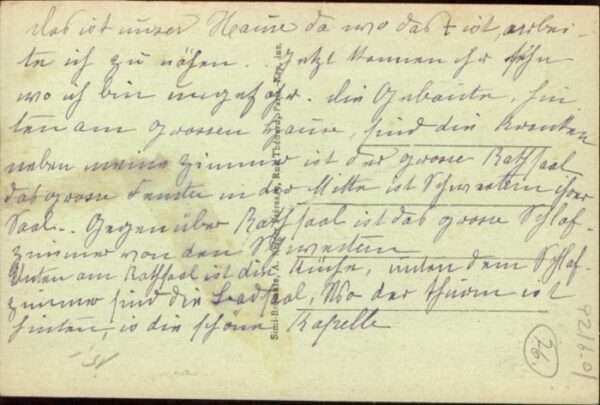 das ist unser Hause da wo das + ist, arbei-
te ich zu nähen.. Jetzt können ihr sehn
wo ich bin ungefähr. die Gebäute, hin
ten am grossen Hause, sind die Kranken
neben meine Zimmer ist der grosse Rathsaal
das grosse Fenster in der Mitte ist Schwestern ihrer
Saal.. Gegenüber Rathsaal ist das grosse Schlaf-
zimmer von den Schwestern
Unten am Rathsaal ist die Küche, unten dem Schlaf-
zimmer sind die Saal, Wo der Thurm ist
hinten, is die schöne Kapelle
76.